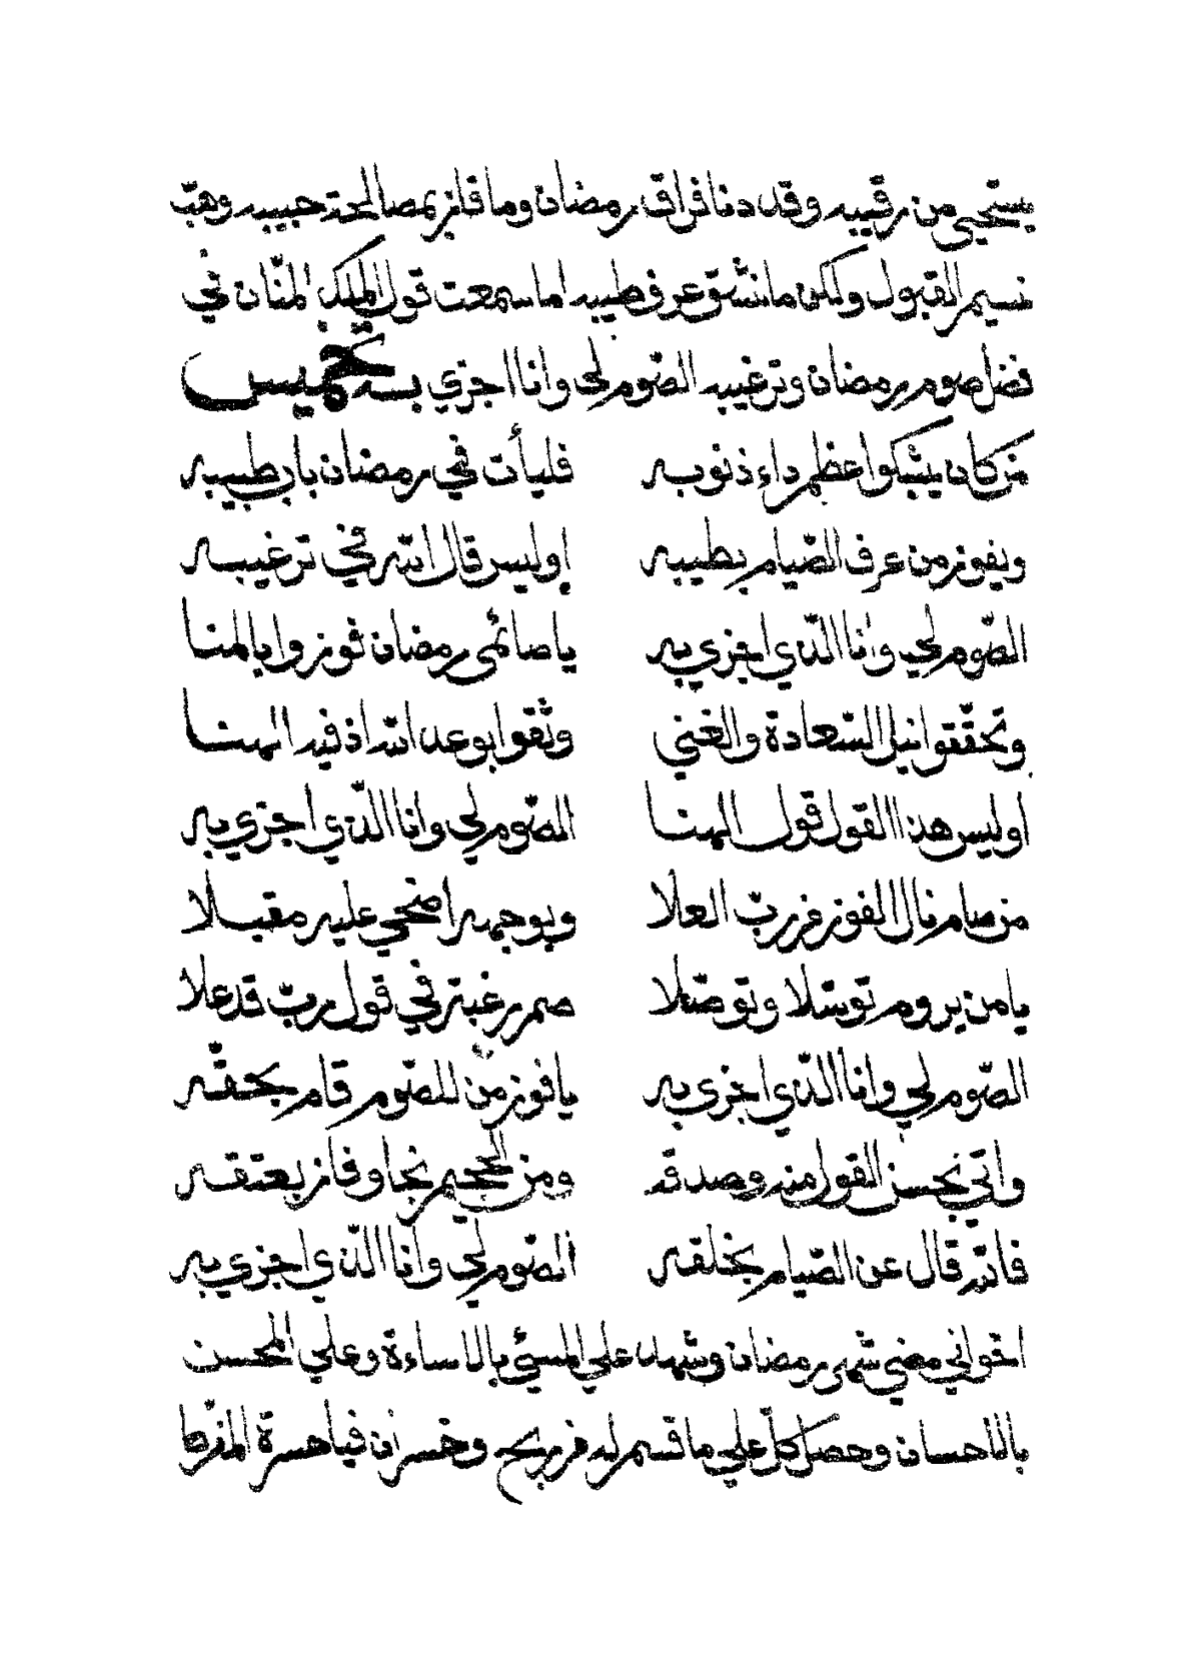 يستحيي من رقيبه وقد دنا فراق رمضان وما فاز بمصالحة حبيبه وهبّ
نسيم القبول ولكن ما نشق عرف طيبه اما سمعت قول الملك المنّان في
فضل صوم رمضان وترغيبه الصّوم لي وانا اجزي به تخميس
من كان يشكوا عظم داء ذنوبه فليأت في رمضان باب طبيبه
ويفوز من عرف الصّيام بطيبه اوليس قال الله في ترغيبه
الصّوم لي وانا الّذي اجزي به يا صائمى رمضان فوزوا بالمنا
وتحقّقوا نيل السّعادة والغني وثقوا بوعد الله اذ فيه الهنا
اوليس هذا القول قول الهنا الصّوم لي وانا الّذي اجزي به
من صام نال الفوز من ربّ العلا وبوجهه اضحي عليه مقبلا
يا من يروم توسّلا وتوصّلا صم رغبة في قول ربّ قد علا
الصّوم لي وانا الّذي اجزي به يا فوز من للصّوم قام بحقّه
واتي بحسن القول منه وصدقه ومن الجحيم نجا وفاز بعتقه
فالله قال عن الصّيام بخلقه الصّوم لي وانا الّذي اجزي به
اخواني مضي شهر رمضان وشهد علي المسئ بالاساءة وعلي المحسن
بالاحسان وحصل كلّ علي ما قسم له من ربح وخسران فيا حسرة المفرّط